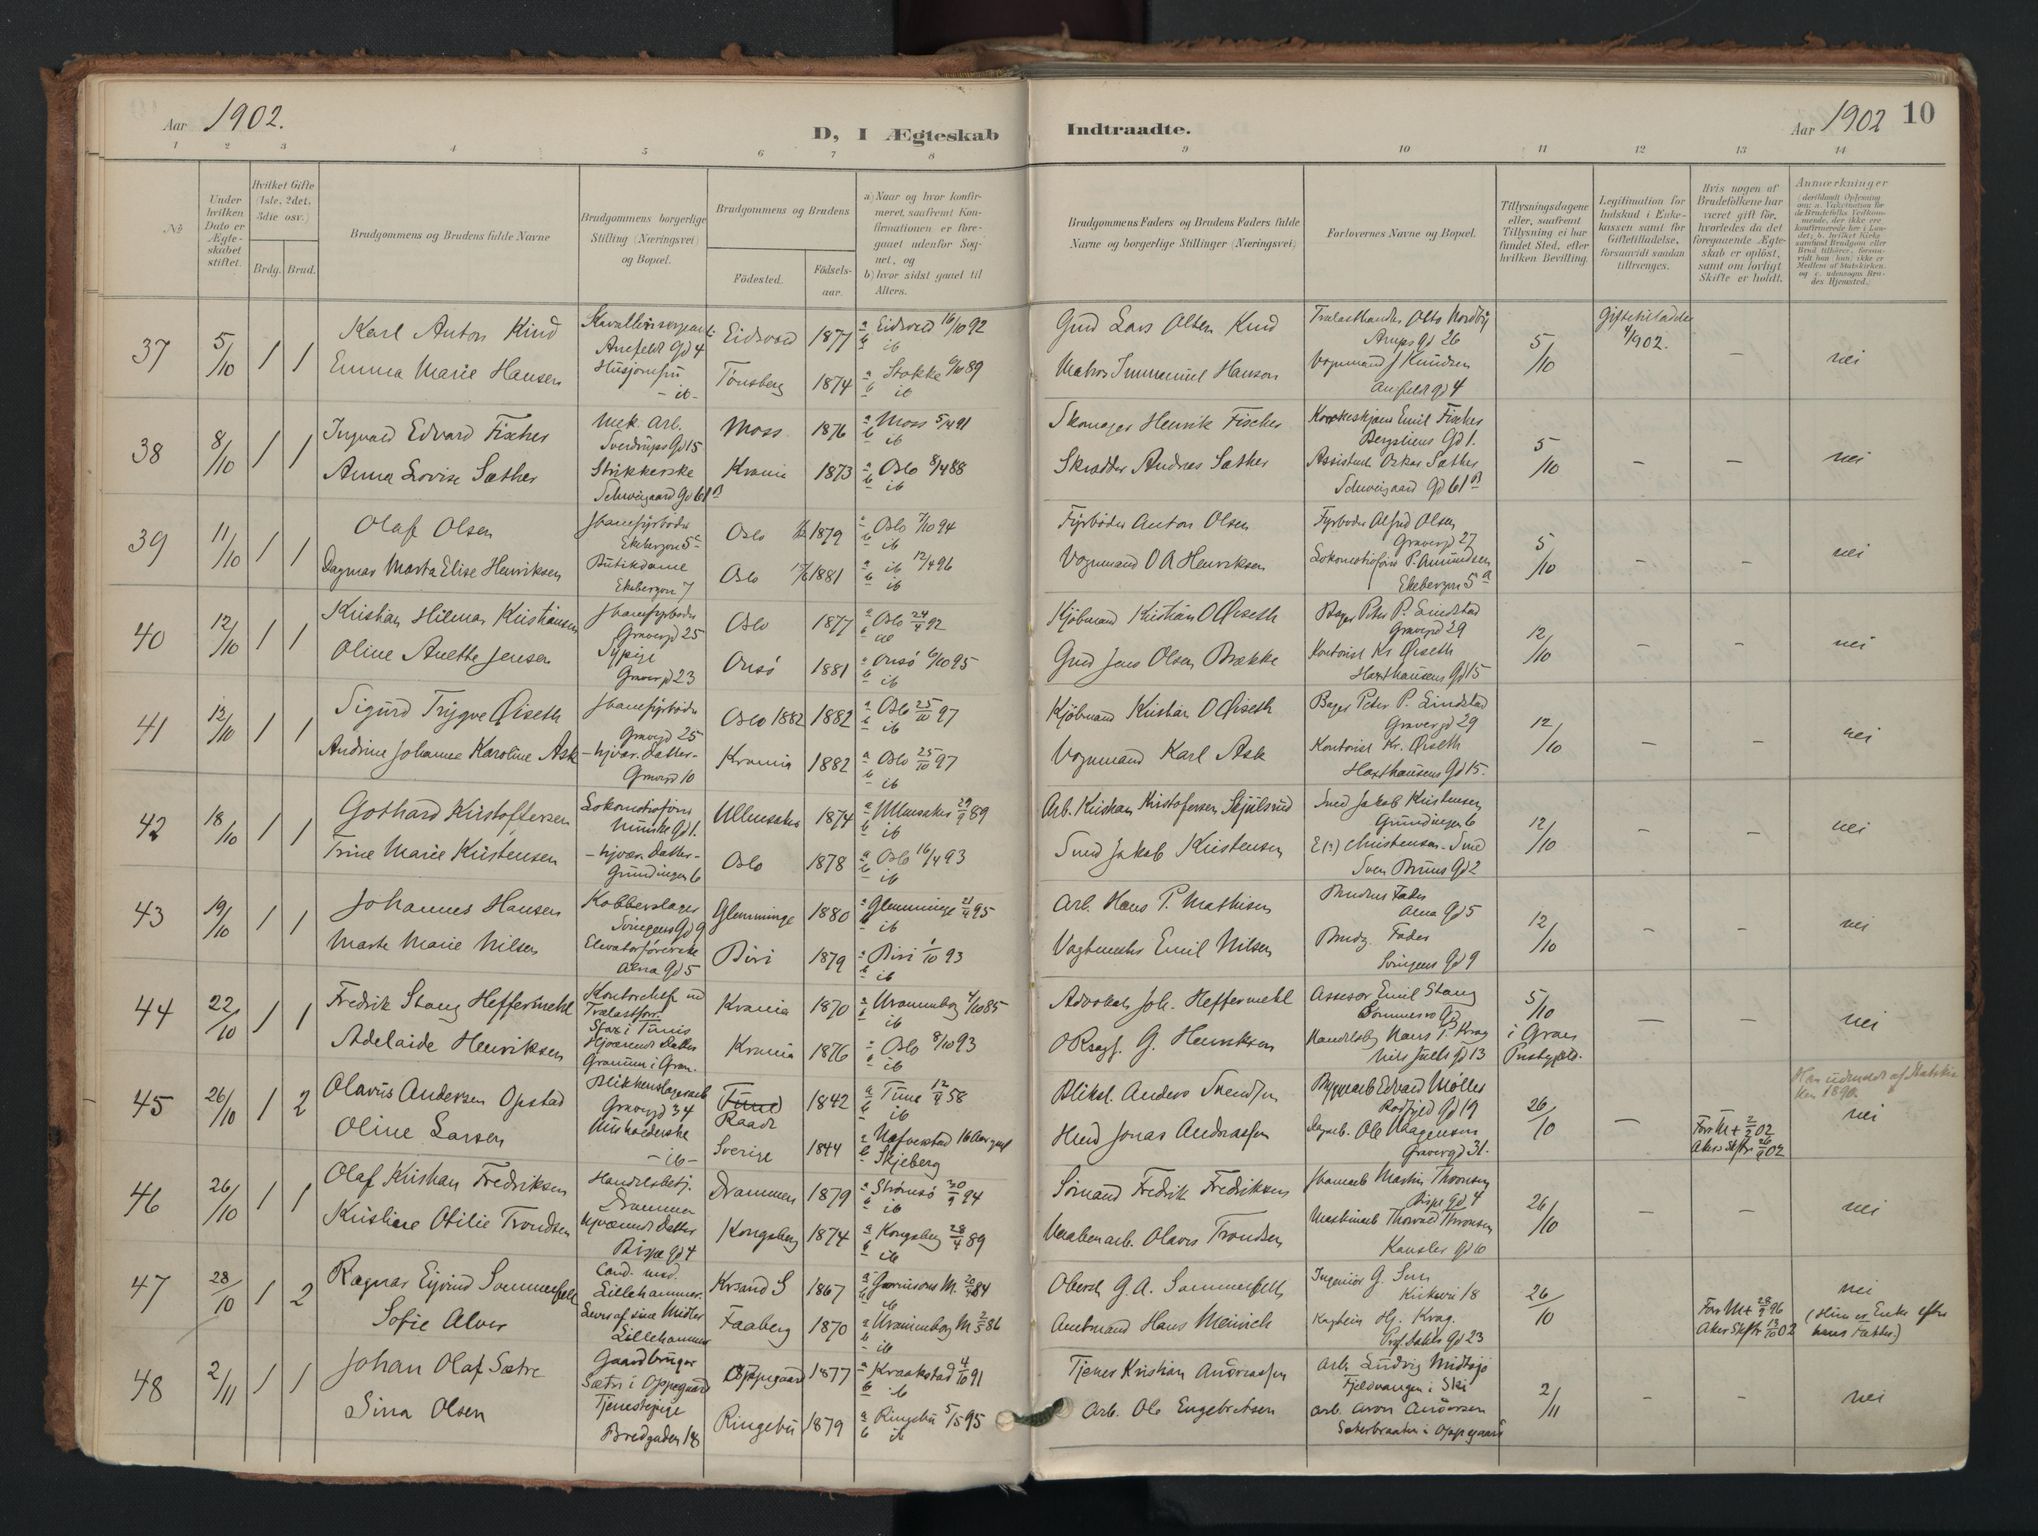 Aar 1902.
D, I Ægteskab
Indtraadte.
Aar 1902
10
1 2 3 4 5 6 7 8 9 10 11 12 13 14
No
Under hvilken Dato er Ægteskabet stiftet.
Hvilket Gifte (1ste, 2det, 3die osv.)
Brdg. Brud.
Brudgommens og Brudens fulde Navne
Brudgommens borgerlige Stilling (Næringsvei) og Bopæl.
Brudgommens og Brudens
Fødested.
Fødselsaar.
a) Naar og hvor konfirmeret, saafremt Konfirmationen er foregaaet udenfor Sognet, og
b) hvor sidst gaaet til Alters.
Brudgommens Faders og Brudens Faders fulde Navne og borgerlige Stillinger (Næringsvei)
Forlovernes Navne og Bopæl.
Tillysningsdagene eller, saafremt Tillysning ei har fundet Sted, efter hvilken Bevilling.
Legitimation for Indskud i Enkekassen samt for Giftetilladelse, forsaavidt saadan tiltrænges.
Hvis nogen af Brudefolkene har været gift før, hvorledes da det foregaaende Ægteskab er opløst, samt om lovligt Skifte er holdt.
Anmærkninger
37 5/10 1 1 Karl Anton Kind Eidsvold 1877 a Eidsvold 16/10 92 Gmd Lars Olsen Kind Trælasthandler Otto Nordby 5/10 Giftetilladelse 4/902. — nei
Anefeldt Gd 4 b ib Arups Gd 26
Emma Marie Hansen Husjomfru Tønsberg 1874 a Stokke 6/10 89 Matros Immanuel Hanson Vognmand J Knudsen
- ib - b ib Anefeldt gd 4
38 8/10 1 1 Ingvald Edvard Fischer Mek. Arb. Moss 1876 a Moss 5/4 91 Skomager Henrik Fischer Emil Fischer 5/10 — — nei
Sverdrups Gd 15 b ib Bergsliens Gd 1.
Anna Lovise Sæther Strikkerske Krania 1873 a Oslo 8/4 88 Skrædder Andreas Sæther Assistent Oskar Sæther
Schweigaard Gd 61 B b ib Schweigaard Gd 61 B
39 11/10 1 1 Olaf Olsen Jbanefyrbøder Oslo 1879 a Oslo 7/10 94 Fyrbøder Anton Olsen Fyrbøder Alfred Olsen 5/10 — — nei
Ekebergvn 5 b ib Gravergd 27
Dagmar Marta Elise Henriksen Butikdame Oslo 1881 a ib 12/4 96 Vognmand O A Henriksen Lokomotivfører P. Amundsen
Ekebergvn 7 b ib Ekebergvn 5 a
40 12/10 1 1 Kristian Hilmar Kristiansen Jbanefyrbøder Oslo 1877 a Oslo 24/4 92 Kjøbmand Kristian O Øiseth Bager Peter P. Lindstad 12/10 — — nei
Gravergd 25 Gravergd 29
Oline Anette Jensen Sypige Onsø 1881 a Onsø 6/10 95 Gmd Jens Olsen Brække Kontorist Kr. Øiseth
Gravergd 23 b ib Haxthausens Gd 15
41 12/10 1 1 Sigurd Trygve Øiseth Jbanefyrbøder Oslo 1882 1882 a Oslo 25/10 97 Kjøbmand Kristian O Øiseth Bager Peter P. Lindstad 12/10 — — nei
Gravergd 25 b ib Gravergd 29
Andrine Johanne Karoline Ask - hjvær. Datter - Krania 1882 a Oslo 25/10 97 Vognmand Karl Ask Kontorist Kr. Øiseth
Gravergd 10 b ib Haxthausens Gd 15.
42 18/10 1 1 Gothard Kristoffersen Lokomotivfører Ullensaker 1874 a Ullensaker 29/9 89 Arb. Kristian Kristofersen Skjulsrud Smed Jakob Kristensen 12/10 — — nei
Munke gd 1. b ib Grundingen 6
Trine Marie Kristensen - hjvær. Datter - Oslo 1878 a Oslo 16/4 93 Smed Jakob Kristensen Christensen - Smed
Grundingen 6 b ib Sven Bruns Gd 2
43 19/10 1 1 Johannes Hansen Kobberslager Glemminge 1880 a Glemminge 21/4 95 Arb. Hans P. Mathisen Brudens Fader 12/10 — — nei
Svingens Gd 9 b ib Alna Gd 5
Marte Marie Nilsen Elevatorførerske Biri 1879 a Biri 1/10 93 Vagtmester Emil Nilsen Brudg. Fader
Alna Gd 5 b ib Svingens Gd 9
44 22/10 1 1 Fredrik Stang Heffermehl Kontorchef ved Krania 1870 a Uranienborg 4/10 85 Advokat Joh. Heffermehl Assessor Emil Stang 5/10 — — nei
Trælastforr. b ib Sommerro Gd
Sfax i Tunis
Adelaide Henriksen Hjværende Datter Krania 1876 a Oslo 8/10 93 O Ragf. G. Henriksen Handelsbg Hans P. Krag i Gran
Granum i Gran. b ib Nils Juels gd 13 Præstegjeld.
45 26/10 1 2 Olavus Andersen Opstad Blikkenslagerarb Tune 1842 a Tune 12/9 58 Bliksl. Anders Svendsen Byggearb Edvard Møller 26/10 Har udmeldt af Statskirken 1890. nei
Gravergd 34 Raade b ib Rodfjed Gd 19
Oline Larsen Husholderske Sverige 1844 a Nafverstad 16 Aar gml Hmd Jonas Andreassen Dagarb. Ole Haagensen Fors M + 2/2 02
- ib - b Skjeberg Gravergd 31. Akers Skftr 26/9 02
46 26/10 1 1 Olaf Kristian Fredriksen Handelsbetj. Drammen 1879 a Strømsø 30/9 94 Sømand Fredrik Fredriksen Jbanearb Martin Thronsen 26/10 — — nei
Drammen b ib Bispe gd 4
Kristine Otilie Trondsen hjværende Datter Kongsberg 1874 a Kongsberg 28/4 89 Vaabenarb. Olavs Trondsen Maskinarb Thorvald Thronsen
Bispe Gd 4 b ib Kansler Gd 10
47 28/10 1 2 Ragnar Ejvind Sommerfelt Cand. med. Krsand S 1867 a Garnisons M. 20/4 84 Oberst G. A. Sommerfelt Ingeniør G. Smi 26/10 nei
Lillehammer. b ib Kirkevei 18
Sofie Alver Lever af sine Midler Faaberg 1870 a Uranienborg M 2/5 86 Amtmand Hans Meinich Kaptein Hj. Krag. Fors M + 28/9 96 (Hun er Enke efter
Lillehammer b ib Prof. Dahls Gd 23 Aker Skftr 13/10 02 hans Fætter)
48 2/11 1 1 Johan Olaf Sætre Gaardbruger Oppegaard 1877 a Kraakstad 4/10 91 Tjener Kristian Andreassen Arb. Ludvig Midtsjø 2/11 — — nei
Sætre i Oppegaard b ib Fjeldvangen i Ski
Sina Olsen Tjenestepige Ringebu 1879 a Ringebu 5/5 95 Arb. Ole Engebretsen Arb. Aron Andersen
Bredgaden 18 b ib Sæterbraaten i Oppegaard